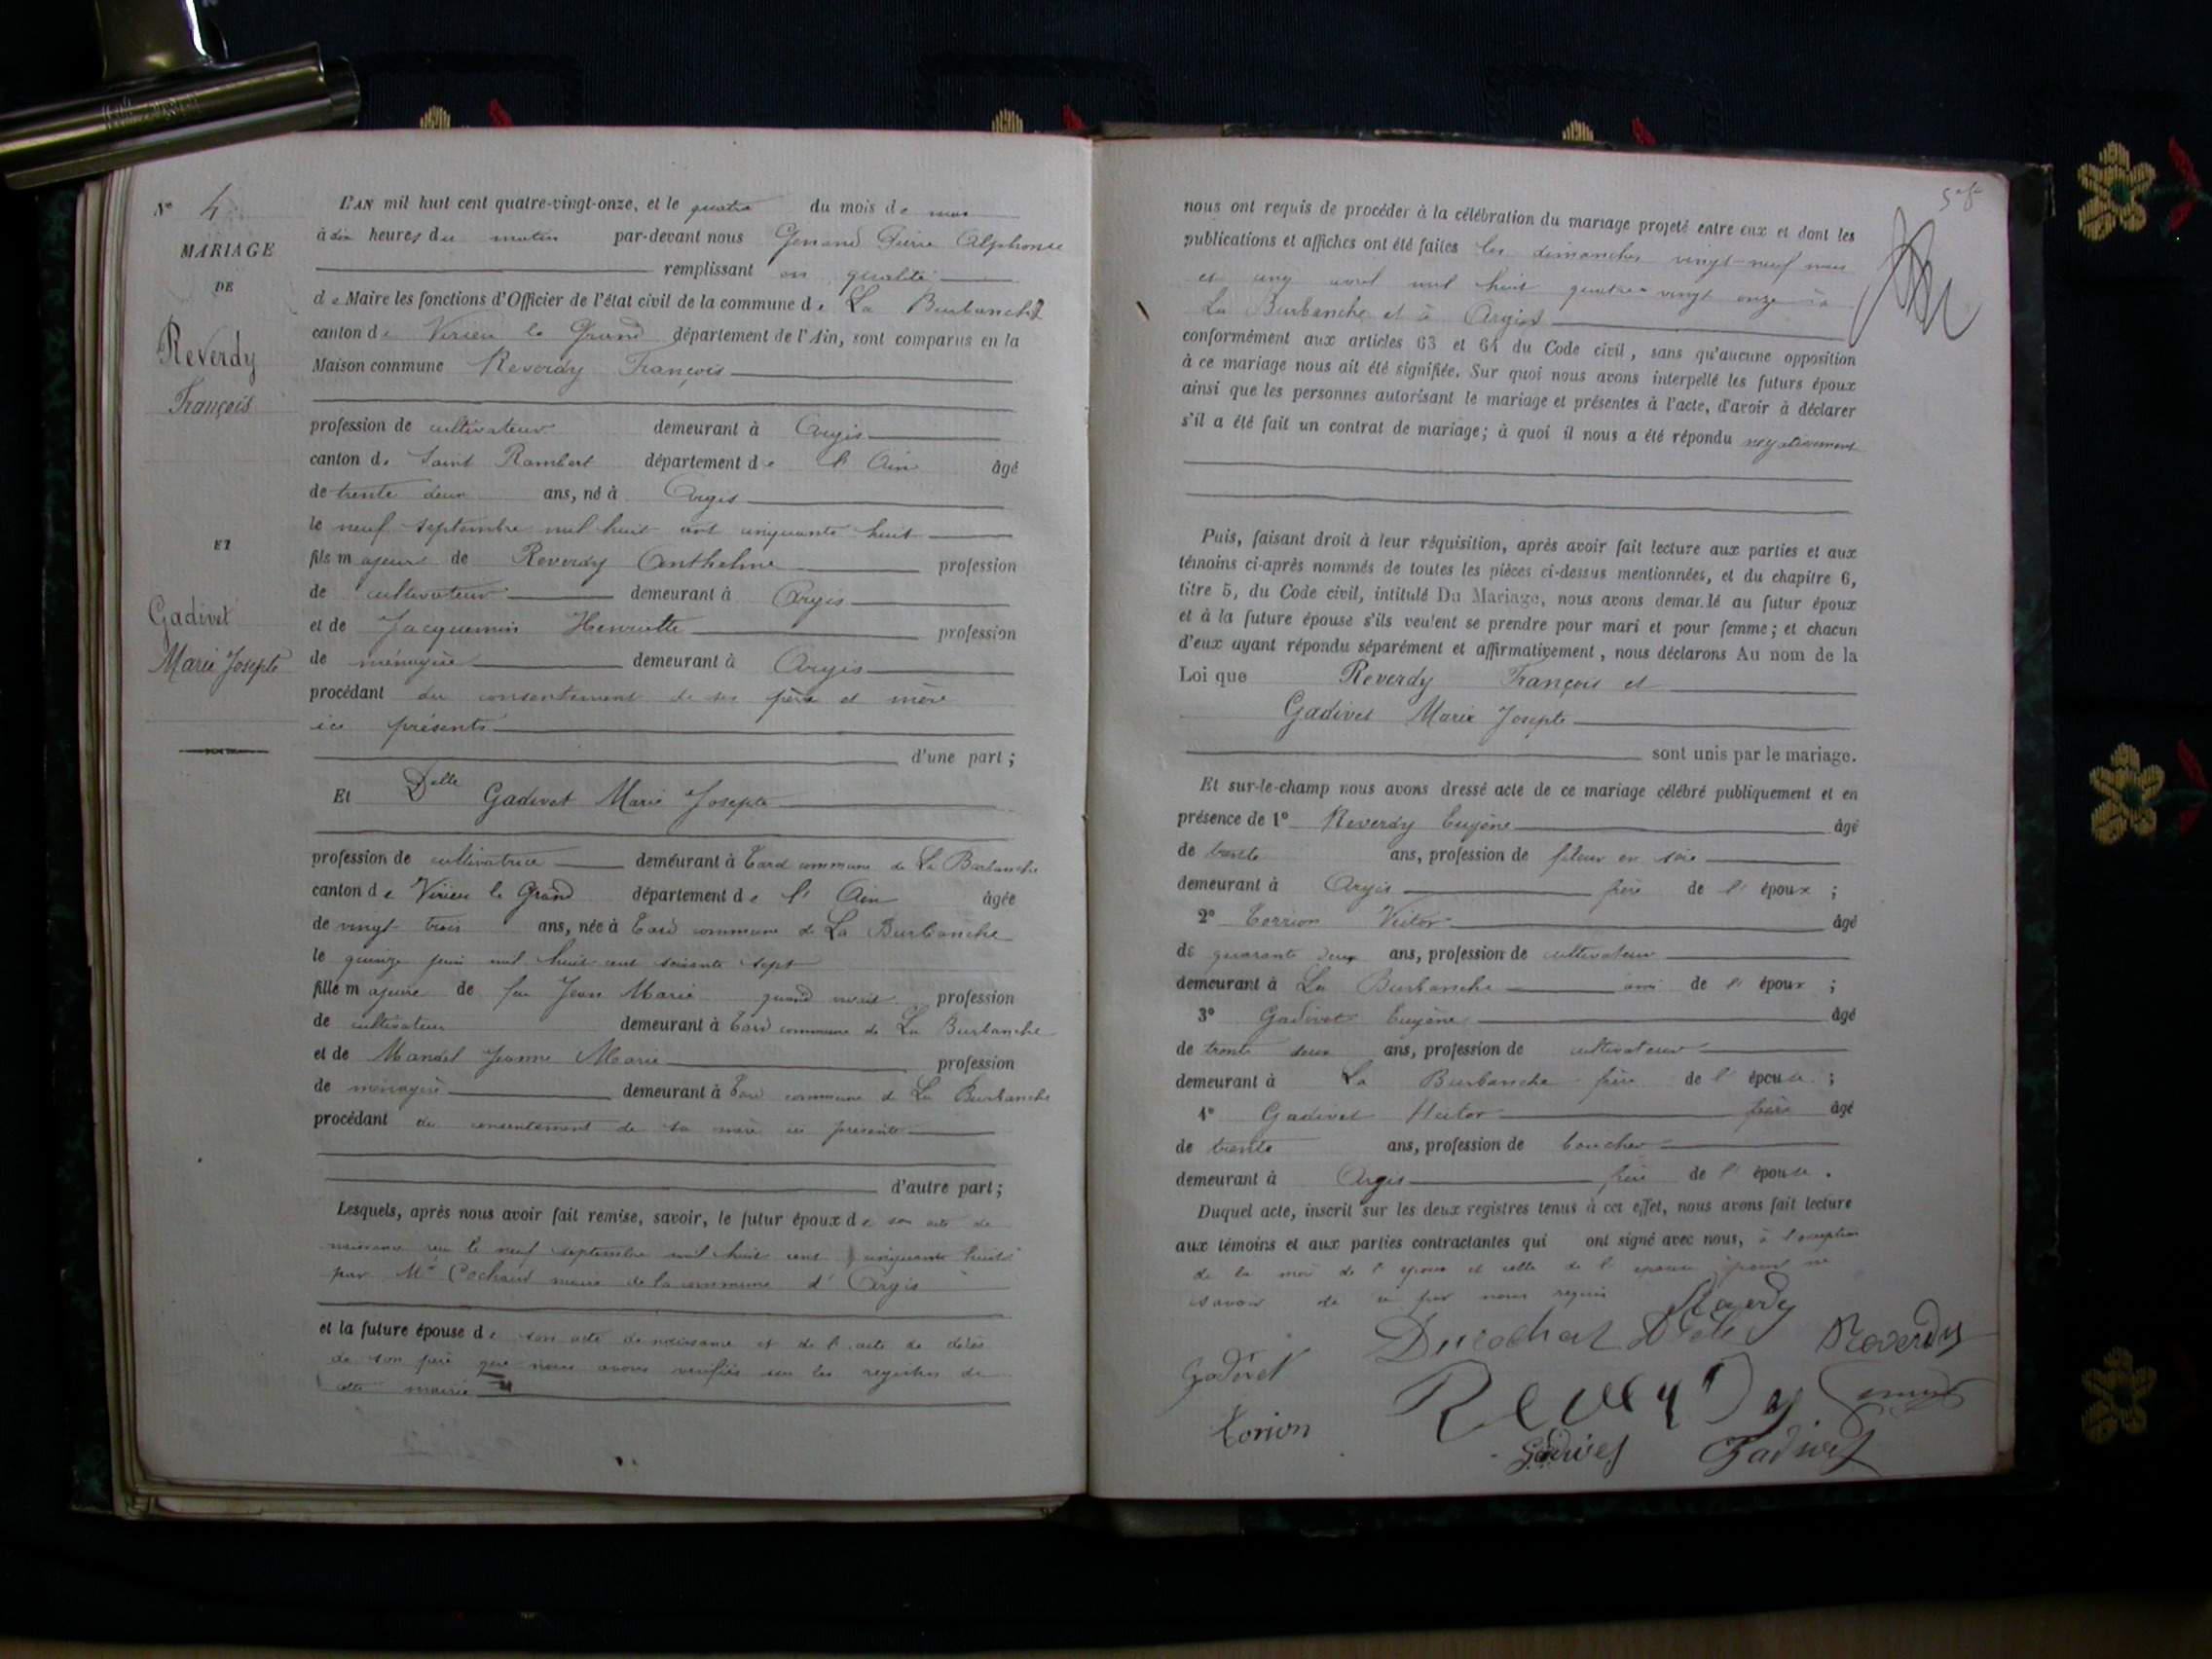 N° 4
MARIAGE
DE
Reverdy
François
ET
Gadivet
Marie Josepte
L'AN mil huit cent quatre-vingt-onze, et le quatre du mois de mai
à dix heures du matin par-devant nous Genand Pierre Alphonse
remplissant en qualité
de Maire les fonctions d'Officier de l'état civil de la commune de La Burbanche
canton de Virieu le Grand département de l'Ain, sont comparus en la
Maison commune Reverdy François
profession de cultivateur demeurant à Argis
canton de Saint Rambert département de l'Ain âgé
de trente deux ans, né à Argis
le neuf septembre mil huit cent cinquante huit
fils majeur de Reverdy Anthelme profession
de cultivateur demeurant à Argis
et de Jacquemin Henriette profession
de ménagère demeurant à Argis
procédant du consentement de ses père et mère
ici présents
d'une part ;
Et Delle Gadivet Marie Josepte
profession de cultivatrice demeurant à Tard commune de La Burbanche
canton de Virieu le Grand département de l'Ain âgée
de vingt trois ans, née à Tard commune de La Burbanche
le quinze juin mil huit cent soixante sept
fille majeure de feu Jean Marie quand vivait profession
de cultivateur demeurant à Tard commune de La Burbanche
et de Mandel Jeanne Marie profession
de ménagère demeurant à Tard commune de La Burbanche
procédant du consentement de sa mère ici présente
d'autre part ;
Lesquels, après nous avoir fait remise, savoir, le futur époux de son acte de
naissance reçu le neuf septembre mil huit cent cinquante huit
par Mr Cochand maire de la commune d'Argis
et la future épouse de son acte de naissance et de l'acte de décès
de son père que nous avons vérifiés sur les registres de
cette mairie
nous ont requis de procéder à la célébration du mariage projeté entre eux et dont les
publications et affiches ont été faites les dimanches vingt-neuf mars
et cinq avril mil huit quatre vingt onze à
La Burbanche et à Argis
conformément aux articles 63 et 64 du Code civil, sans qu'aucune opposition
à ce mariage nous ait été signifiée. Sur quoi nous avons interpellé les futurs époux
ainsi que les personnes autorisant le mariage et présentes à l'acte, d'avoir à déclarer
s'il a été fait un contrat de mariage; à quoi il nous a été répondu négativement
Puis, faisant droit à leur réquisition, après avoir fait lecture aux parties et aux
témoins ci-après nommés de toutes les pièces ci-dessus mentionnées, et du chapitre 6,
titre 5, du Code civil, intitulé Du Mariage, nous avons demandé au futur époux
et à la future épouse s'ils veulent se prendre pour mari et pour femme ; et chacun
d'eux ayant répondu séparément et affirmativement, nous déclarons Au nom de la
Loi que Reverdy François et
Gadivet Marie Josepte
sont unis par le mariage.
Et sur-le-champ nous avons dressé acte de ce mariage célébré publiquement et en
présence de 1° Reverdy Eugène âgé
de trente ans, profession de fileur en soie
demeurant à Argis frère de l'époux ;
2° Torrion Victor âgé
de quarante deux ans, profession de cultivateur
demeurant à La Burbanche ami de l'époux ;
3° Gadivet Eugène âgé
de trente deux ans, profession de cultivateur
demeurant à La Burbanche frère de l'épouse ;
4° Gadivet Hector frère âgé
de trente ans, profession de boucher
demeurant à Argis frère de l'épouse.
Duquel acte, inscrit sur les deux registres tenus à cet effet, nous avons fait lecture
aux témoins et aux parties contractantes qui ont signé avec nous, à l'exception
de la mère de l'époux et celle de l'épouse pour ne
savoir de ce fait requis
Reverdy
Gadivet
Reverdy
Torrion
Reverdy
Genand
Gadivet
Gadivet